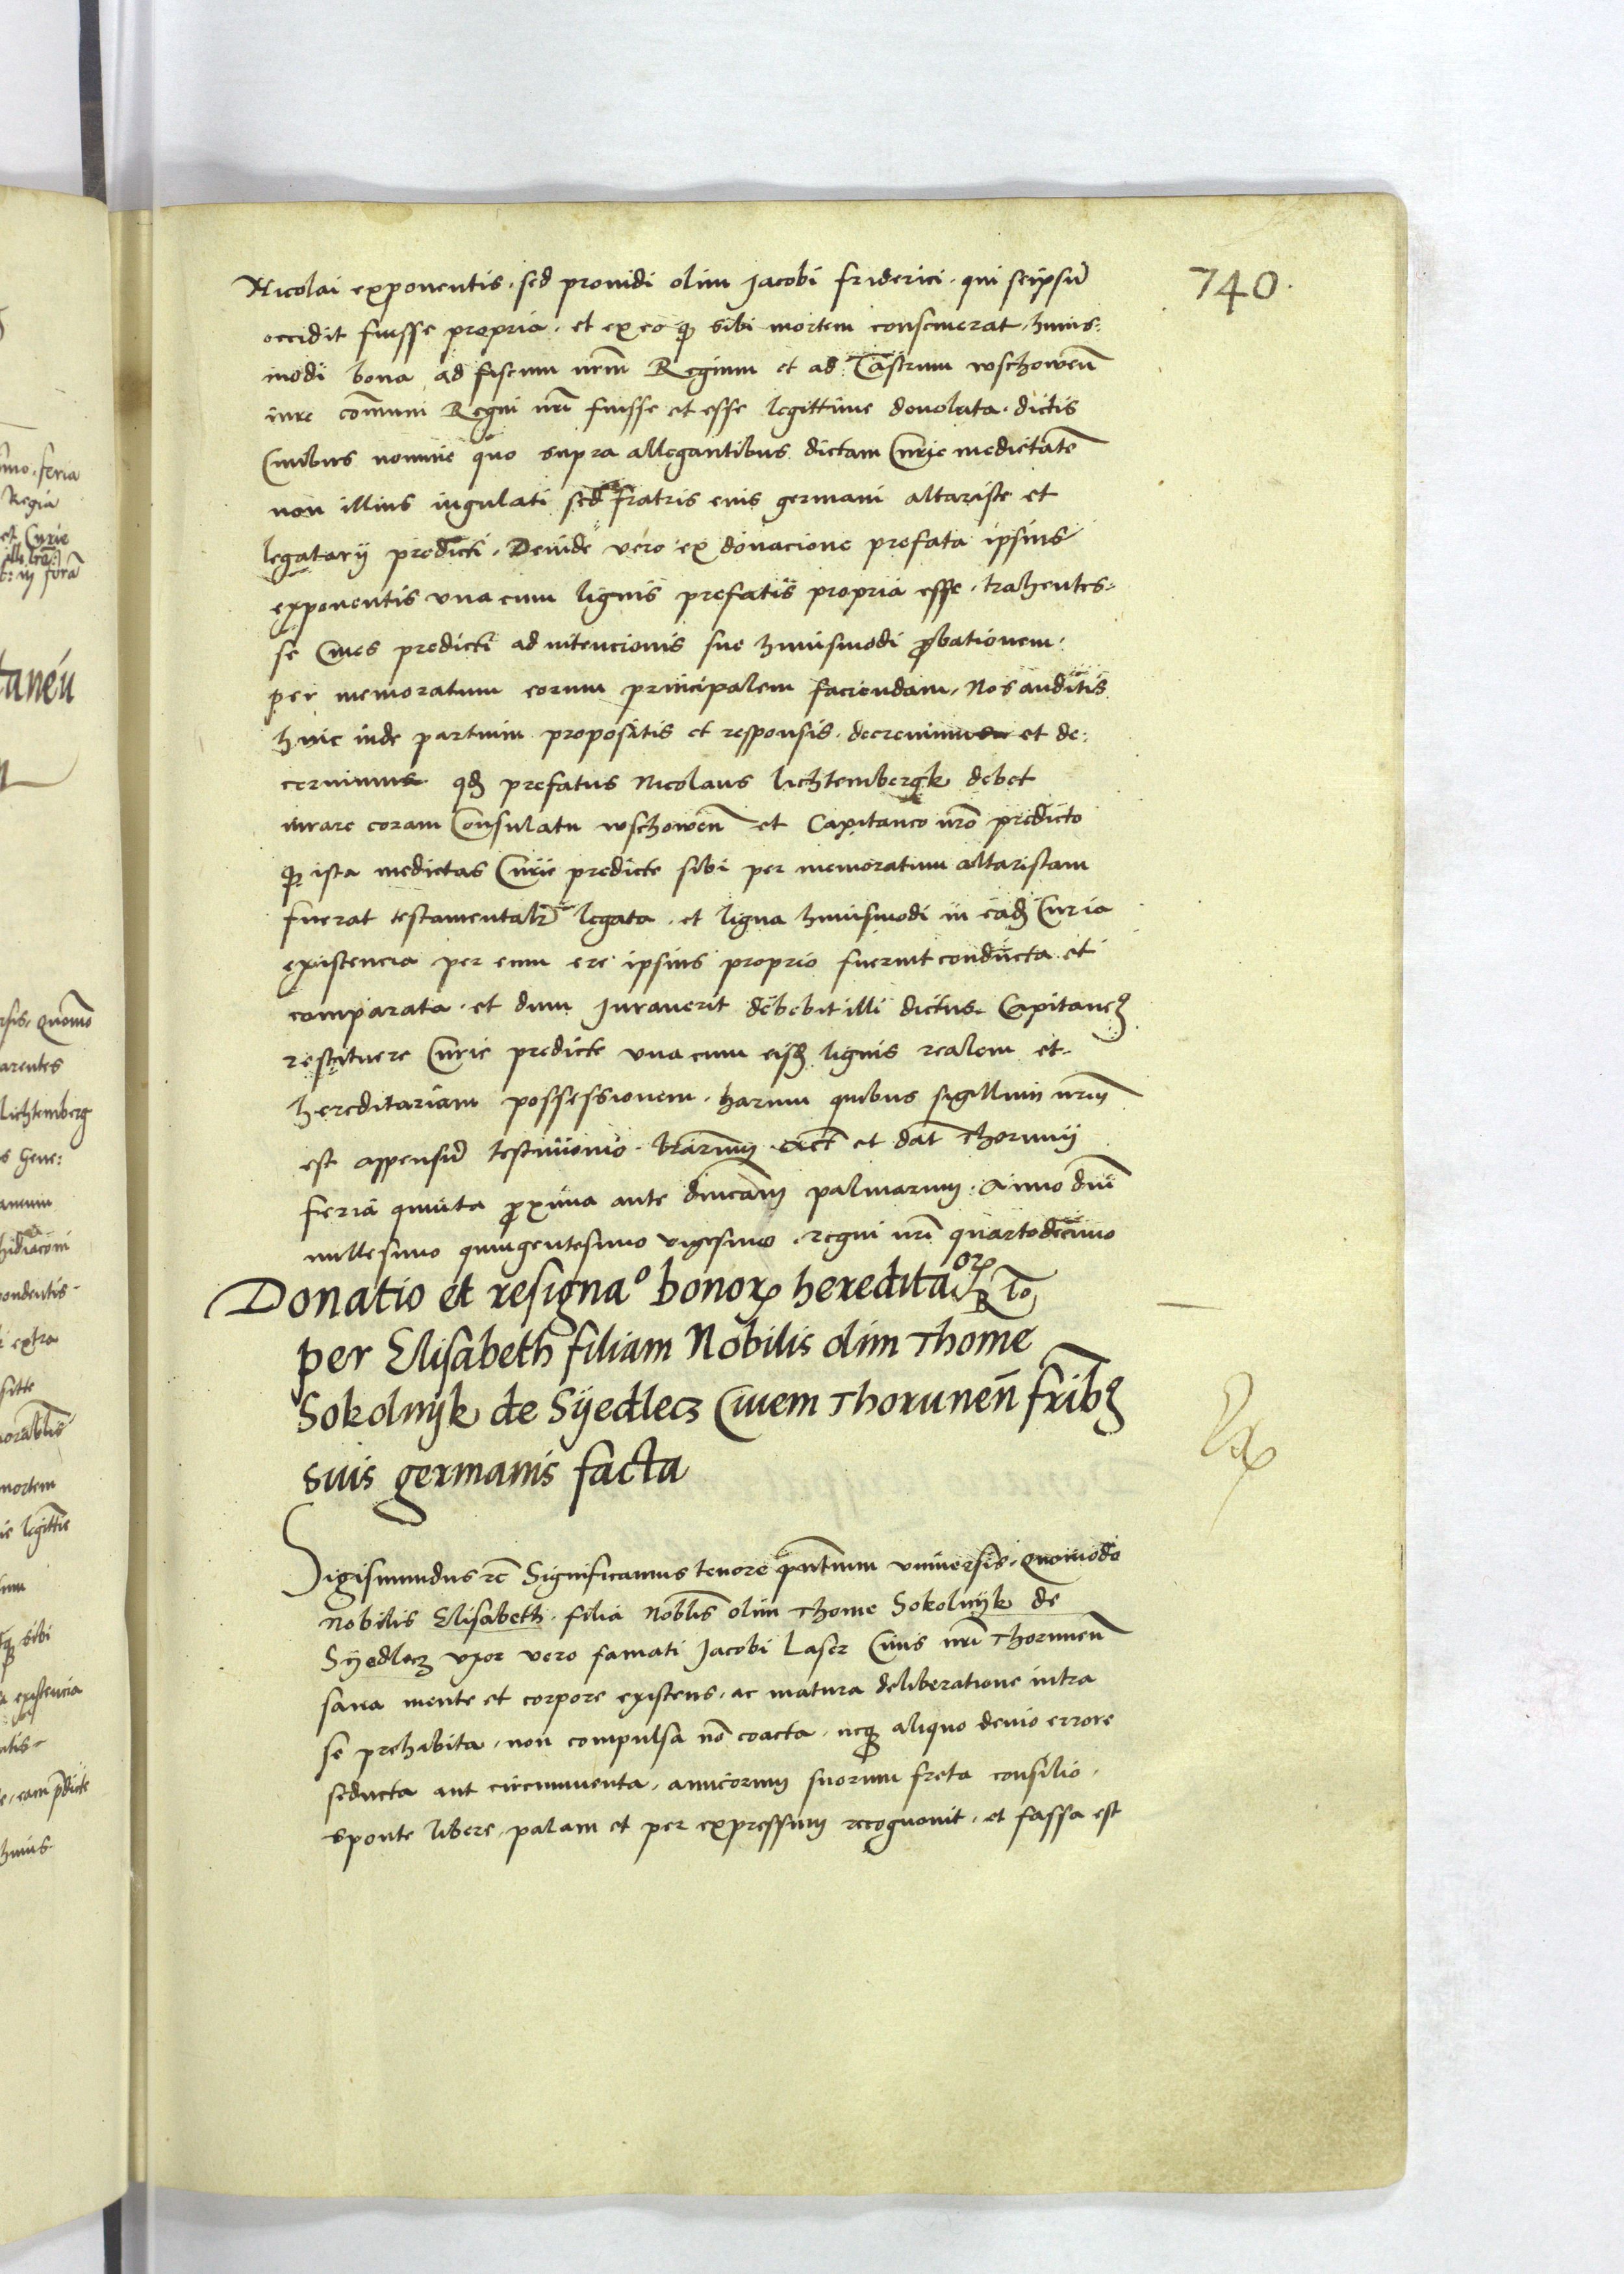 740.
Nicolai exponentis, sed prouidi olim Jacobi friderici, qui seipsũ
occidit fuisse propria, et ex eo qꝫ sibi mortem consciuerat, huius:
modi bona ad fiscum nr̃m Regium et ad Castrum wschowen̄
iure cõmuni Regni nr̃i fuisse et esse legittime deuoluta. dictis
Ciuibus nomine quo supra allegantibus dictam Curie medietatẽ
non illius iugulati sed fratris eius germani altariste et
legatarij predicti. Deinde vero ex donacione prefata ipsius
exponentis vna cum lignis prefatis propria esse, trahentes:
se Ciues predicti ad intencionis sue huiusmodi ꝓbationem
per memoratum eorum principalem faciendam. Nos auditis
hinc inde partium propositis et responsis, decreuimus et de:
cernimus qđ prefatus Nicolaus Lichtembergk debet
iurare coram Consulatu wschowen̄ et Capitaneo nr̃o predicto
qꝫ ista medietas Curie predicte sibi per memoratum altaristam
fuerat testamentalr̃ legata, et ligna huiusmodi in eadẽ Curia
existencia per eum ere ipsius proprio fuerunt conducta et
comparata. et dum Jurauerit debebit illi dictus Capitane9
restituere Curie predicte vna cum eisdẽ lignis realem et
hereditariam possessionem. harum quibus sigillum nr̃m
est appensũ testimonio lr̃arum. Act̃ et dat̃ Thorunij
feria quinta ꝓxima ante dñicam palmarum. Anno dñi
millesimo quingentesimo vigesimo, regni nr̃i quartodecimo
Donatio et resignaº bonoꝝ hereditaoꝝ
per Elisabeth filiam Nobilis olim Thome
Sokolnyk de Syedlecz Ciuem Thorunen̄ fribꝫ
suis germanis facta
Sigismundus rc̃ Significamus tenore pñtium vniuersis, Quomodo
Nobilis Elisabeth, filia Nobilis olim Thome Sokolnyk de
Syedlecz vxor vero famati Jacobi Laser Ciuis nr̃i Thorunen̄
sana mente et corpore existens, ac matura deliberatione intra
se prehabita, non compulsa nõ coacta, neqꝫ aliquo deuio errore
seducta aut circumuenta, amicorum suorum freta consilio,
sponte libere, palam et per expressum recognouit, et fassa est